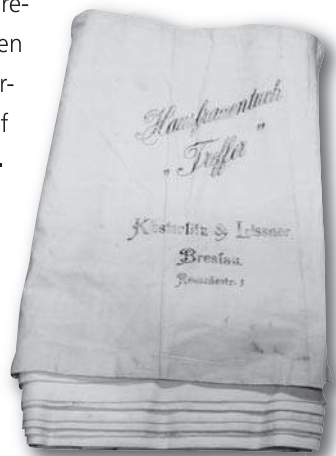 re-
en
r-
f
.
Hausfrauentuch
„Treffer”
Kosterlitz & Lissner
Breslau.
Reuschestr.